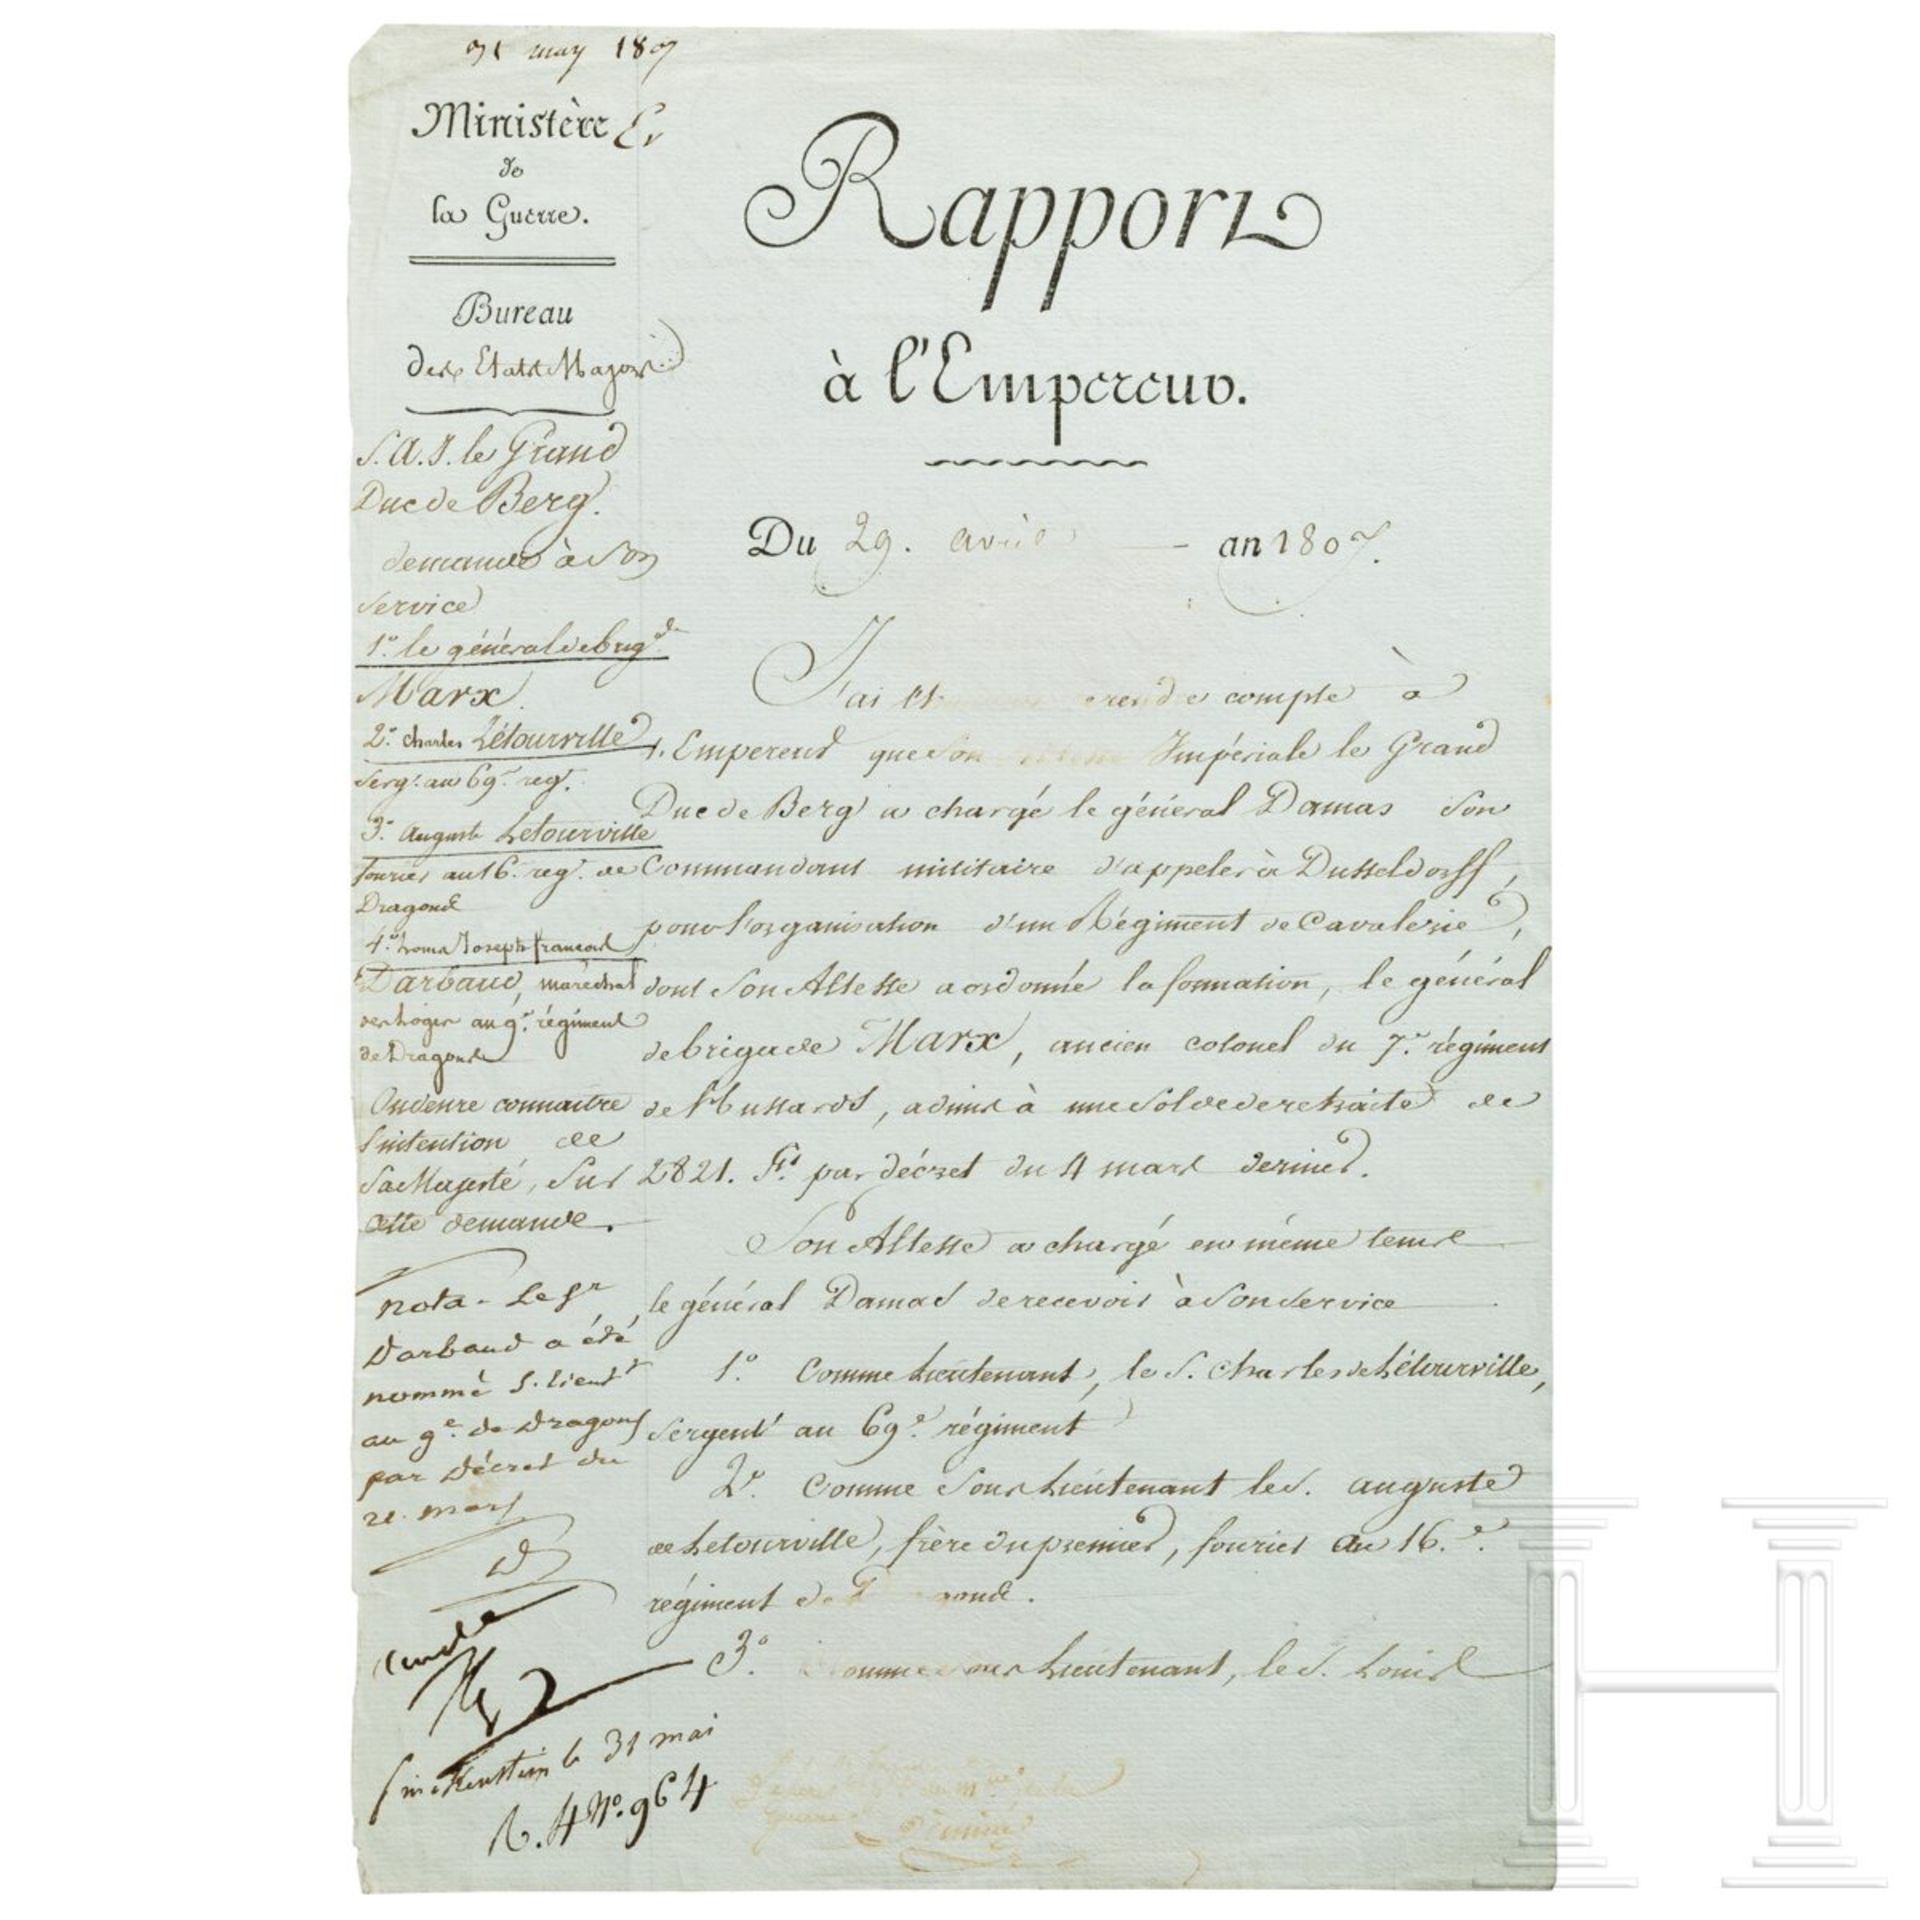 31 may 1807
Ministère
de
la Guerre.
Bureau
des Etats Majors
S. A. I. le Grand
Duc de Berg.
demande à son
service
1.° le général de brig.de
Marx.
2.° Charles Létourville
Serg.t au 69.e reg.t
3.° Auguste Letourville
fourier au 16.e reg.t de
Dragons
4.° Louis Joseph françois
Darbaud, maréchal
des logis au 9.e régiment
de Dragons
On desire connaitre
l'intention de
Sa Majesté, sur
cette demande.
nota - Le Sr
Darbaud a été
nommé S. Lieutt
au 9e de Dragons
par décret du
mars
Finckenstein le 31 mai
N.° 964
Rapport
à l'Empereur.
Du 29. avril an 1807.
J'ai rendre compte à
l'Empereur que Son Impériale le Grand
Duc de Berg a chargé le général Damas son
Commandant militaire d'appeler à Dusseldorff,
pour l'organisation d'un Régiment de Cavalerie,
dont Son Altesse a ordonné la formation, le général
de brigade Marx, ancien colonel du 7.e régiment
de hussards, admis à une solde de retraite de
2821. F.s par décret du 4 mars dernier.
Son Altesse a chargé en même tems
le général Damas de recevoir à son service
1.° Comme Lieutenant, le S. Charles de Létourville,
Sergent au 69.e régiment
2.° Comme Sous Lieutenant le S. auguste
de Letourville, frère du premier, fourier au 16.e
régiment de
3.° Comme sous Lieutenant, le S. Louis